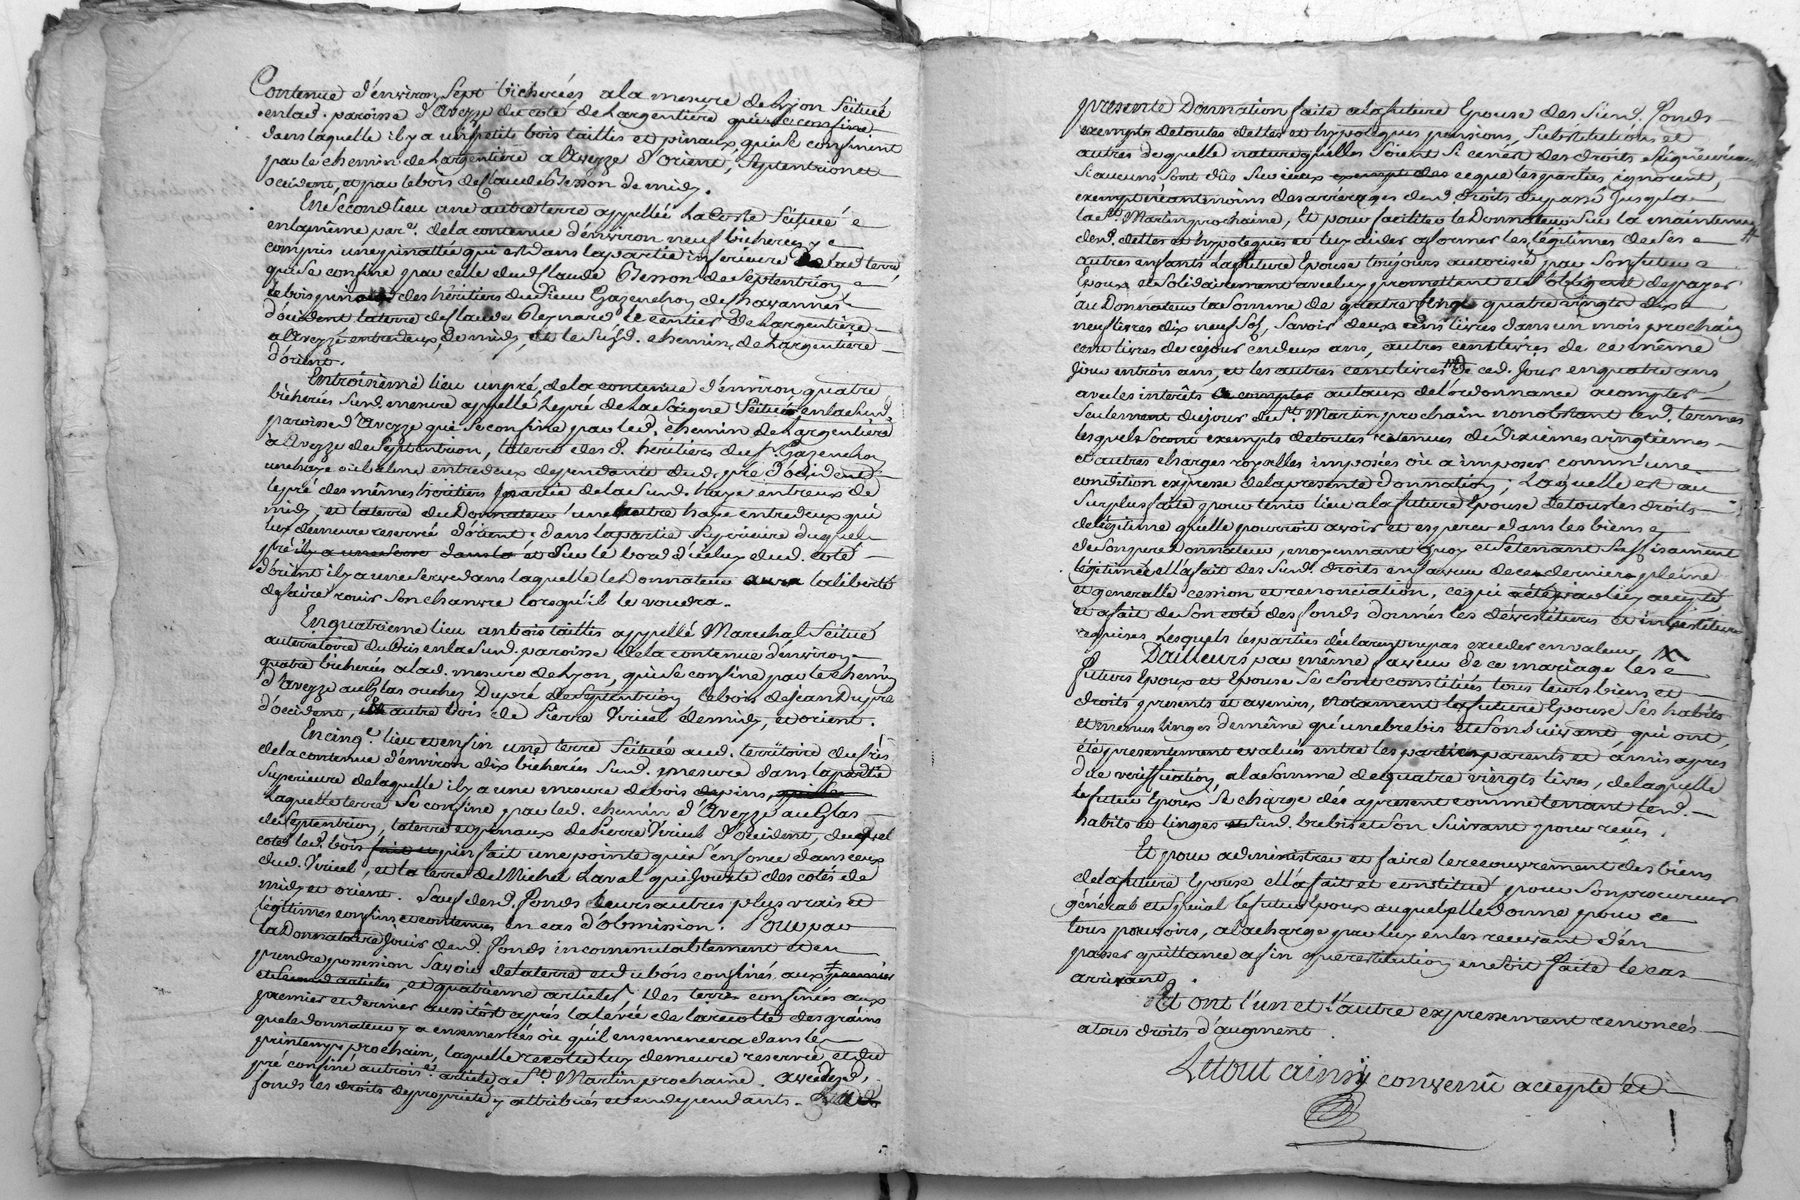 Contenue d'énviron sept bicherées a la mesure de Lyon Scitué
enlad. paroisse d'Aveyze du coté de Largentiere qui se confine
dans laquelle il y a un petits bois taillis et pinaux, qui se confinent
par le chemin de Largentiere a Aveyze d'orient, septentrion et
occident, et par le bois de Claude Besson de midy.
En Sécond lieu une autre terre appellée La Coste Scituée
en la même par.e de la contenue d'énviron neuf bicherées y
compris une pinattée qui est dans la partie inferieure de lad terre,
qui se confine par celle dud. Claude Besson de septentrion
le bois pinaux des héritiers du Sieur Gazenchon de
d'ocident la terre de Claude Reynard le sentier de Largentiere
a Aveyze entredeux, de midy, et le susd. chemin de Largentiere
d'orient.
En troisième lieu un pré, de la contenue d'énviron quatre
bicherées susd. mesure appellé Le pré de La Saigne Scitué en la susd.
paroisse d'Aveyze qui se confine par led. chemin de Largentiere
a Aveyze de septentrion, la terre des d. héritiers du Sr. Gazenchon
une haye entredeux dependante dud. pré d'ocident
le pré des mêmes héritiers partie de la susd. haye entreux de
midy, et la terre du Donnateur une autre haye entredeux qui
luy demeure reservée d'orient. dans la partie superieure duquel
pré il y a une serve dans la et sur le bord d'iceluy dud. coté
d'orient il y a une serve dans laquelle le Donnateur aura la liberté
de faire rouir son chanvre lorsqu'il le voudra.
En quatrieme lieu un bois taillis appellé Marechal Scitué
au territoire du en la susd. paroisse de la contenue d'énviron
quatre bicherées a lad. mesure de Lyon, qui se confine par le chemin
d'Aveyze au Glas ou chez Dupré de septentrion le bois de Jean Dupré
d'occident, autre bois de Pierre Vricel de midy, et orient.
En cinq.e lieu et enfin une terre Scituée aud. territoire du
de la contenue d'énviron dix bicherées susd. mesure dans la partie
superieure de laquelle il y a une mesure de bois de pins,
Laquelle terre se confine par led. chemin d'Aveyze au Glas
de septentrion, la terre et pinaux de Pierre Vricel d'occident, duquel
coté led. bois fait et pin fait une pointe qui s'énfonce dans ceux
dud. Vricel, et la terre de Michel Laval qui Jouxte des cotés de
midy et orient. Sauf desd. fonds leurs autres plus vrais et
légitimes confins et contenues en cas d'obmission. Pour par
la Donnataire Jouir desd. fonds incommutablement et en
prendre possession Savoir de la terre et du bois confinés aux premier
et second articles, et quatrième articles des terres confinées aux
premier et dernier aussitôt après la levée de la recolte des grains
que le donnateur y a ensemencés ou qu'il ensemencera dans le
printemps prochain, laquelle recolte luy demeure reservée et du
pré confiné au trois.e article a St. Martin prochaine. avec desd.
fonds les droits de proprieté y attribués et en dependants.
presente Donnation faite a la future Epouse des susd. fonds
exempts de toutes dettes et hypoteques pensions, substitutions et
autres de quelle nature quelles soient si ce n'est des droits seigneuriaux
si aucuns sont dûs sur iceux exempt des ce que les parties ignorent,
exempt néantmoins des arrérages desd. droits du passé Jusqu'a
la St. Martin prochaine, Et pour faciliter le Donnateur sur la maintenue
desd. dettes et hypoteques et luy aider a former les légitimes de ses
autres enfants La future Epouse toujours autorisée par son futur
Epoux et solidairement avec luy promettent et s'obligent de payer
au Donnateur la somme de quatre cent quatre vingts dix
neuf livres dix neuf sols, savoir deux cens livres dans un mois prochain
cent livres de ce jour en deux ans, autres cent livres de ce même
Jour en trois ans, et les autres cent livres de ced. Jour en quatre ans,
avec les intérêts a compter au taux de l'ordonnance a compter
seulement du jour de St. Martin prochain nonobstant lesd. termes
lesquels seront exempts de toutes retenues de dixièmes vingtiemes
et autres charges royalles imposées où a imposer comm'une
condition expresse de la presente donnation; Laquelle est au
surplus faite pour tenir lieu a la future Epouse de tous les droits
de légitime qu'elle pourroit avoir et esperer dans les biens
de son pere donnateur, moyennant quoy et se tenant suffisament
légitimée ell'a fait des susd. droits en faveur de ce dernier pleine
et generalle cession et renonciation, ce qui a été par luy accepté
et a fait de son coté des fonds donnés les dévestitures et investitures
requises, Lesquels les parties déclarent ne pas exceder en valeur X
D'ailleurs par même faveur de ce mariage les
futurs Epoux et Epouse se sont constitués tous leurs biens et
droits presents et avenirs, notament la future Epouse ses habits
et menus linges de même qu'une brebis et son suivant qui ont
été presentement evalués entre les parties parents et amis après
due vérification, a la somme de quatre vingts livres, de laquelle
le futur Epoux se charge dés apresent comme tenant lesd.
habits et linges et susd. brebis et son suivant pour reçus.
Et pour administrer et faire le recouvrement des biens
de la future Epouse ell'a fait et constitué pour son procureur
général et spécial le futur Epoux auquel elle donne pour ce
tous pouvoirs, a la charge par luy en les recevant d'en
passer quittance afin que restitution en soit faite le cas
arrivant.
Et ont l'un et l'autre expressement renoncés
a tous droits d'augment.
Le tout ainsy convenu accepté et